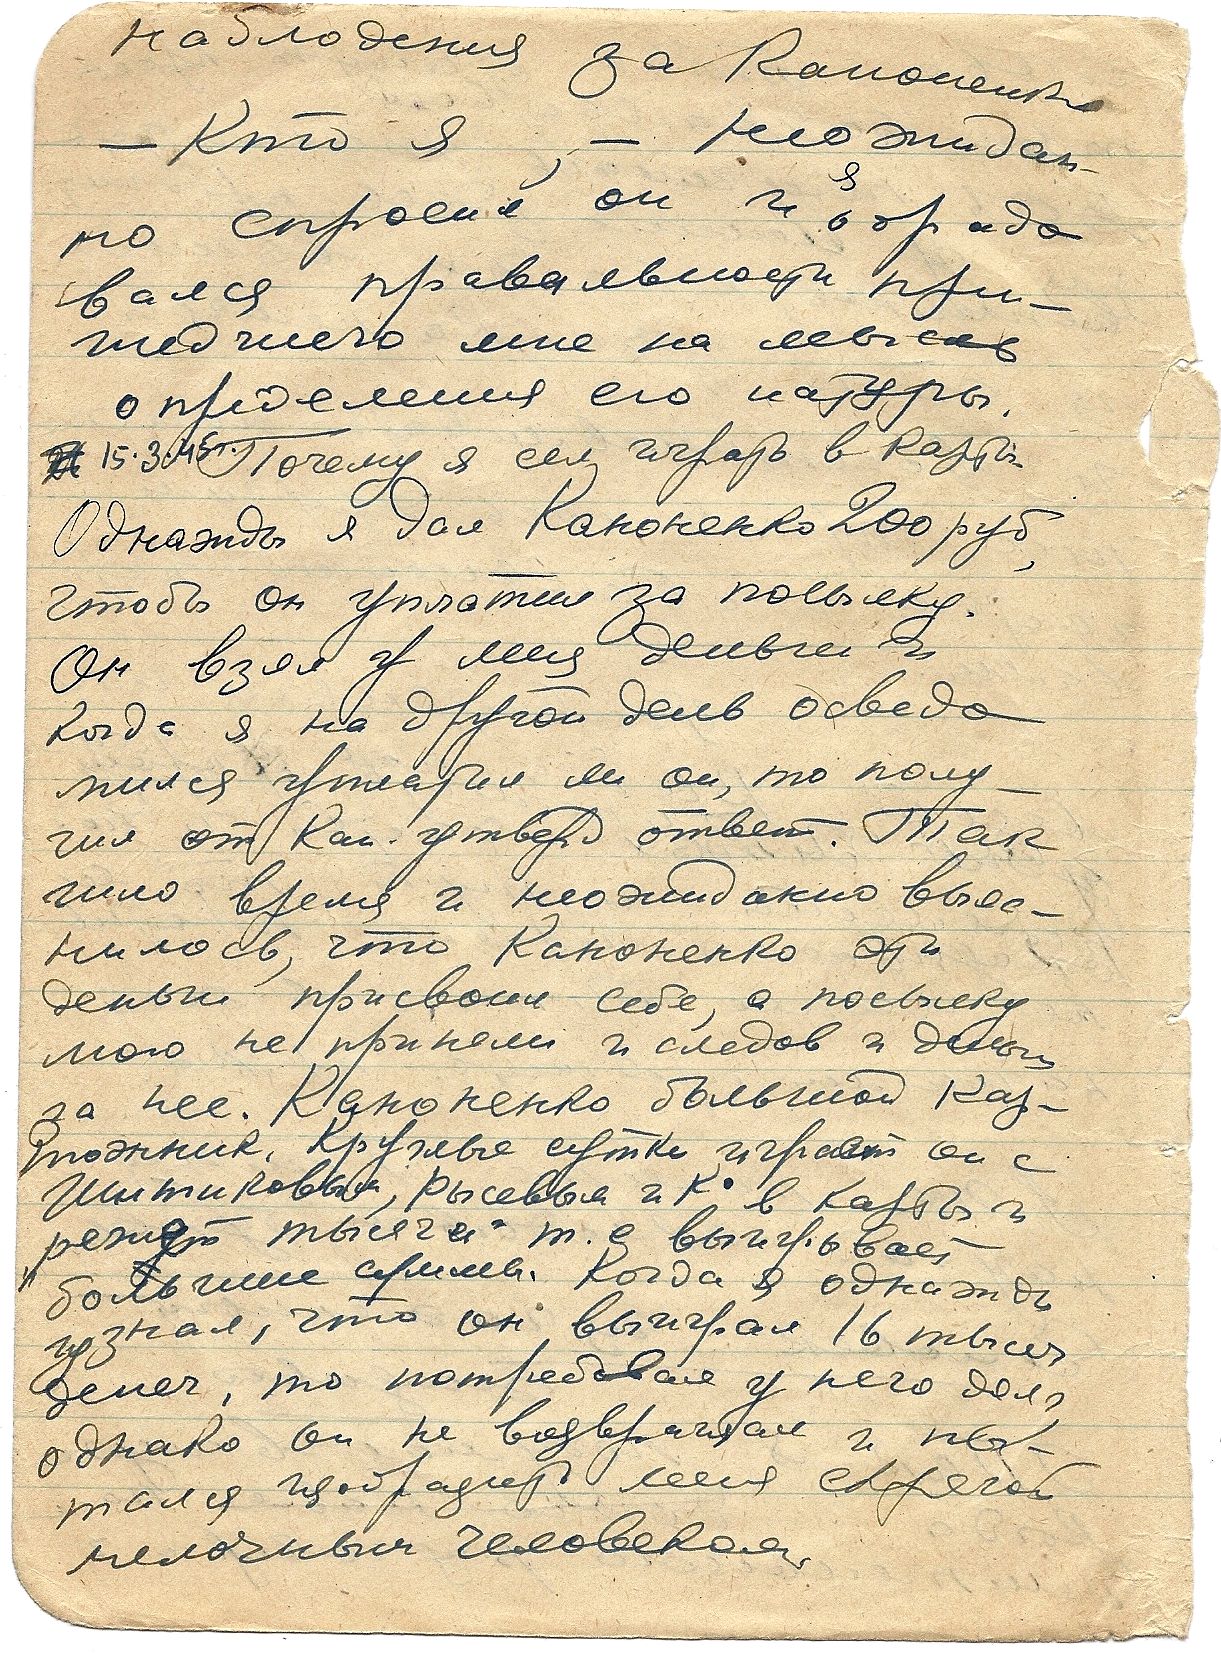 наблюдения за Каноненко
— Кто я, — неожидан-
но спросил он и я обрадо
вался правильности при-
шедшего мне на мысль
определения его натуры.
15.3.45г. Почему я сел играть в карты
Однажды я дал Каноненко 200 руб,
чтобы он уплатил за посылку.
Он взял у меня деньги и
когда я на другой день осведо
мился уплатил ли он, то полу-
чил от Кан. утверд ответ. Так
шло время и неожиданно выяс-
нилось, что Каноненко эти
деньги присвоил себе, а посылку
мою не приняли и следов и деньги
за нее. Каноненко большой кар-
тожник. Круглые сутки играет он с
Шитиковым, Рысевым и К° в карты и
"режет тысячи" т.е выигрывает
большие суммы. Когда я однажды
узнал, что он выиграл 16 тысяч
денег, то потребовал у него долг,
однако он не возвращал и пы-
тался изобразить меня скрягой
мелочным человеком.